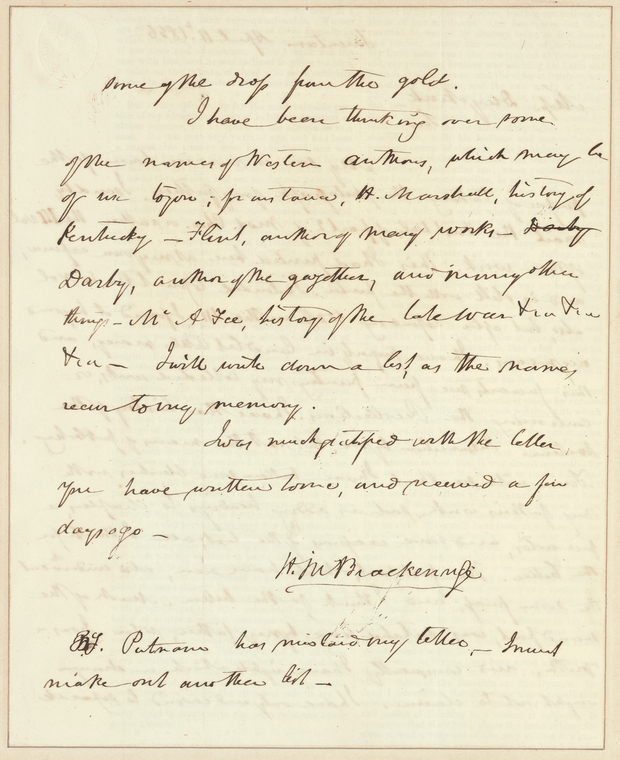 some of the dross from the gold.
I have been thinking over some
of the names of Western authors, which may be
of use to you; for instance, H. Marshall, history of
Kentucky — Flint, author of many works — Darby
Darby, author of the gazetteer, and many other
things — Mc A Fee, history of the late war &ca &ca
&ca — I will write down a list, as the names
recur to my memory.
I was much gratified with the letter
you have written to me, and received a few
days ago —
H. M. Brackenridge
Putnam has mislaid my letter, — I must
make out another list —